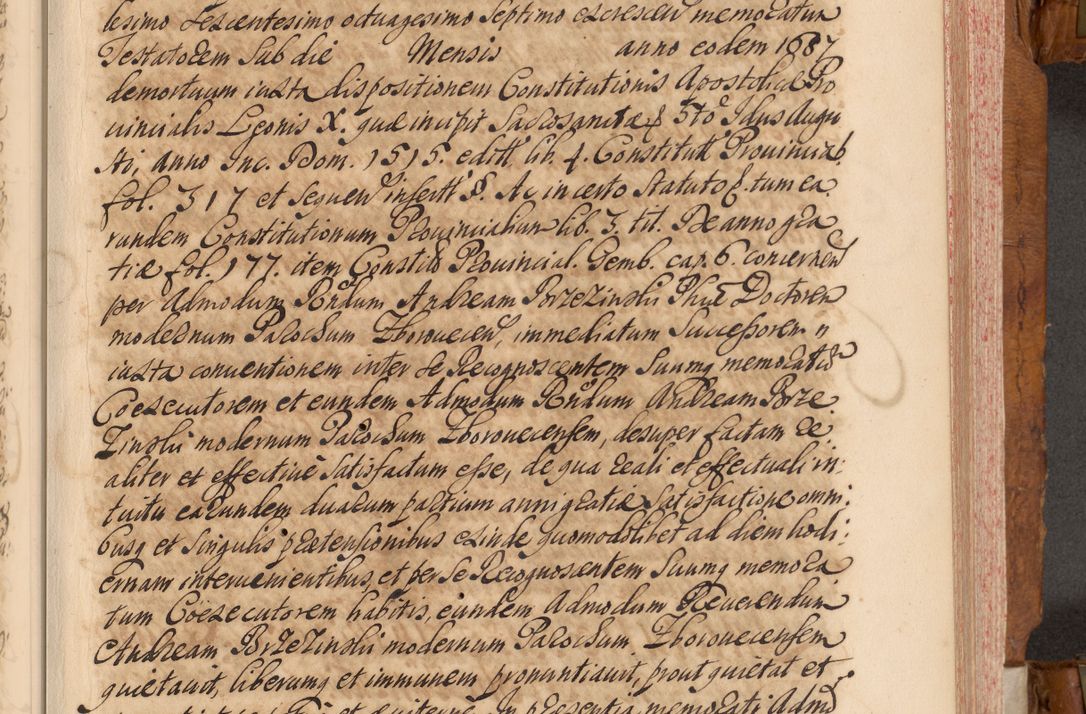 lesimo Sexcentesimo octuagesimo Septimo excrescen memoratum
Testatorem Sub die Mensis anno eodem 1687
demortuum iuxta dispositionem Constitutionis Apostolicæ Pro
uincialis Leonis X. quæ incipit Sacrosanctæ 5to Idus Augu
sti, anno Inc. Dom. 1515. edit lib. 4. Constitut Prouincial.
fol. 317 et Sequen insert §. Ac in certo Statuto tum ea
rundem Constitutionum Prouincialium lib. 3. tit. De anno gra
tiæ fol. 177. item Constit Prouincial. Gemb. cap. 6. concernen
per Admodum Rndum Andream Brzezinski Phiæ Doctorem
modernum Parochum Zborouecen, immediatum Successorem
iuxta conuentionem inter Se Recognoscentem Suumq memoratu
Coexecutorem et eundem Admodum Rndum Andream Brze
Zinski modernum Parochum Zborouecensem, desuper factam re
aliter et effectiuè Satisfactum esse, de qua reali et effectuali in:
tuitu earundem duarum partium anni gratiæ Satisfactione omni
busq et Singulis prætensionibus exinde quomodolibet ad diem hodi:
ernam interuenientibus, et per Se Recognoscentem Suumq memora
tum Coexecutorem habitis, eundem Admodum Reuerendum
Andream Brzezinski modernum Parochum Zborouecensem
quietauit, liberumq et immunem pronuntiauit, prout quietat et
et In præsentia memorati Admo